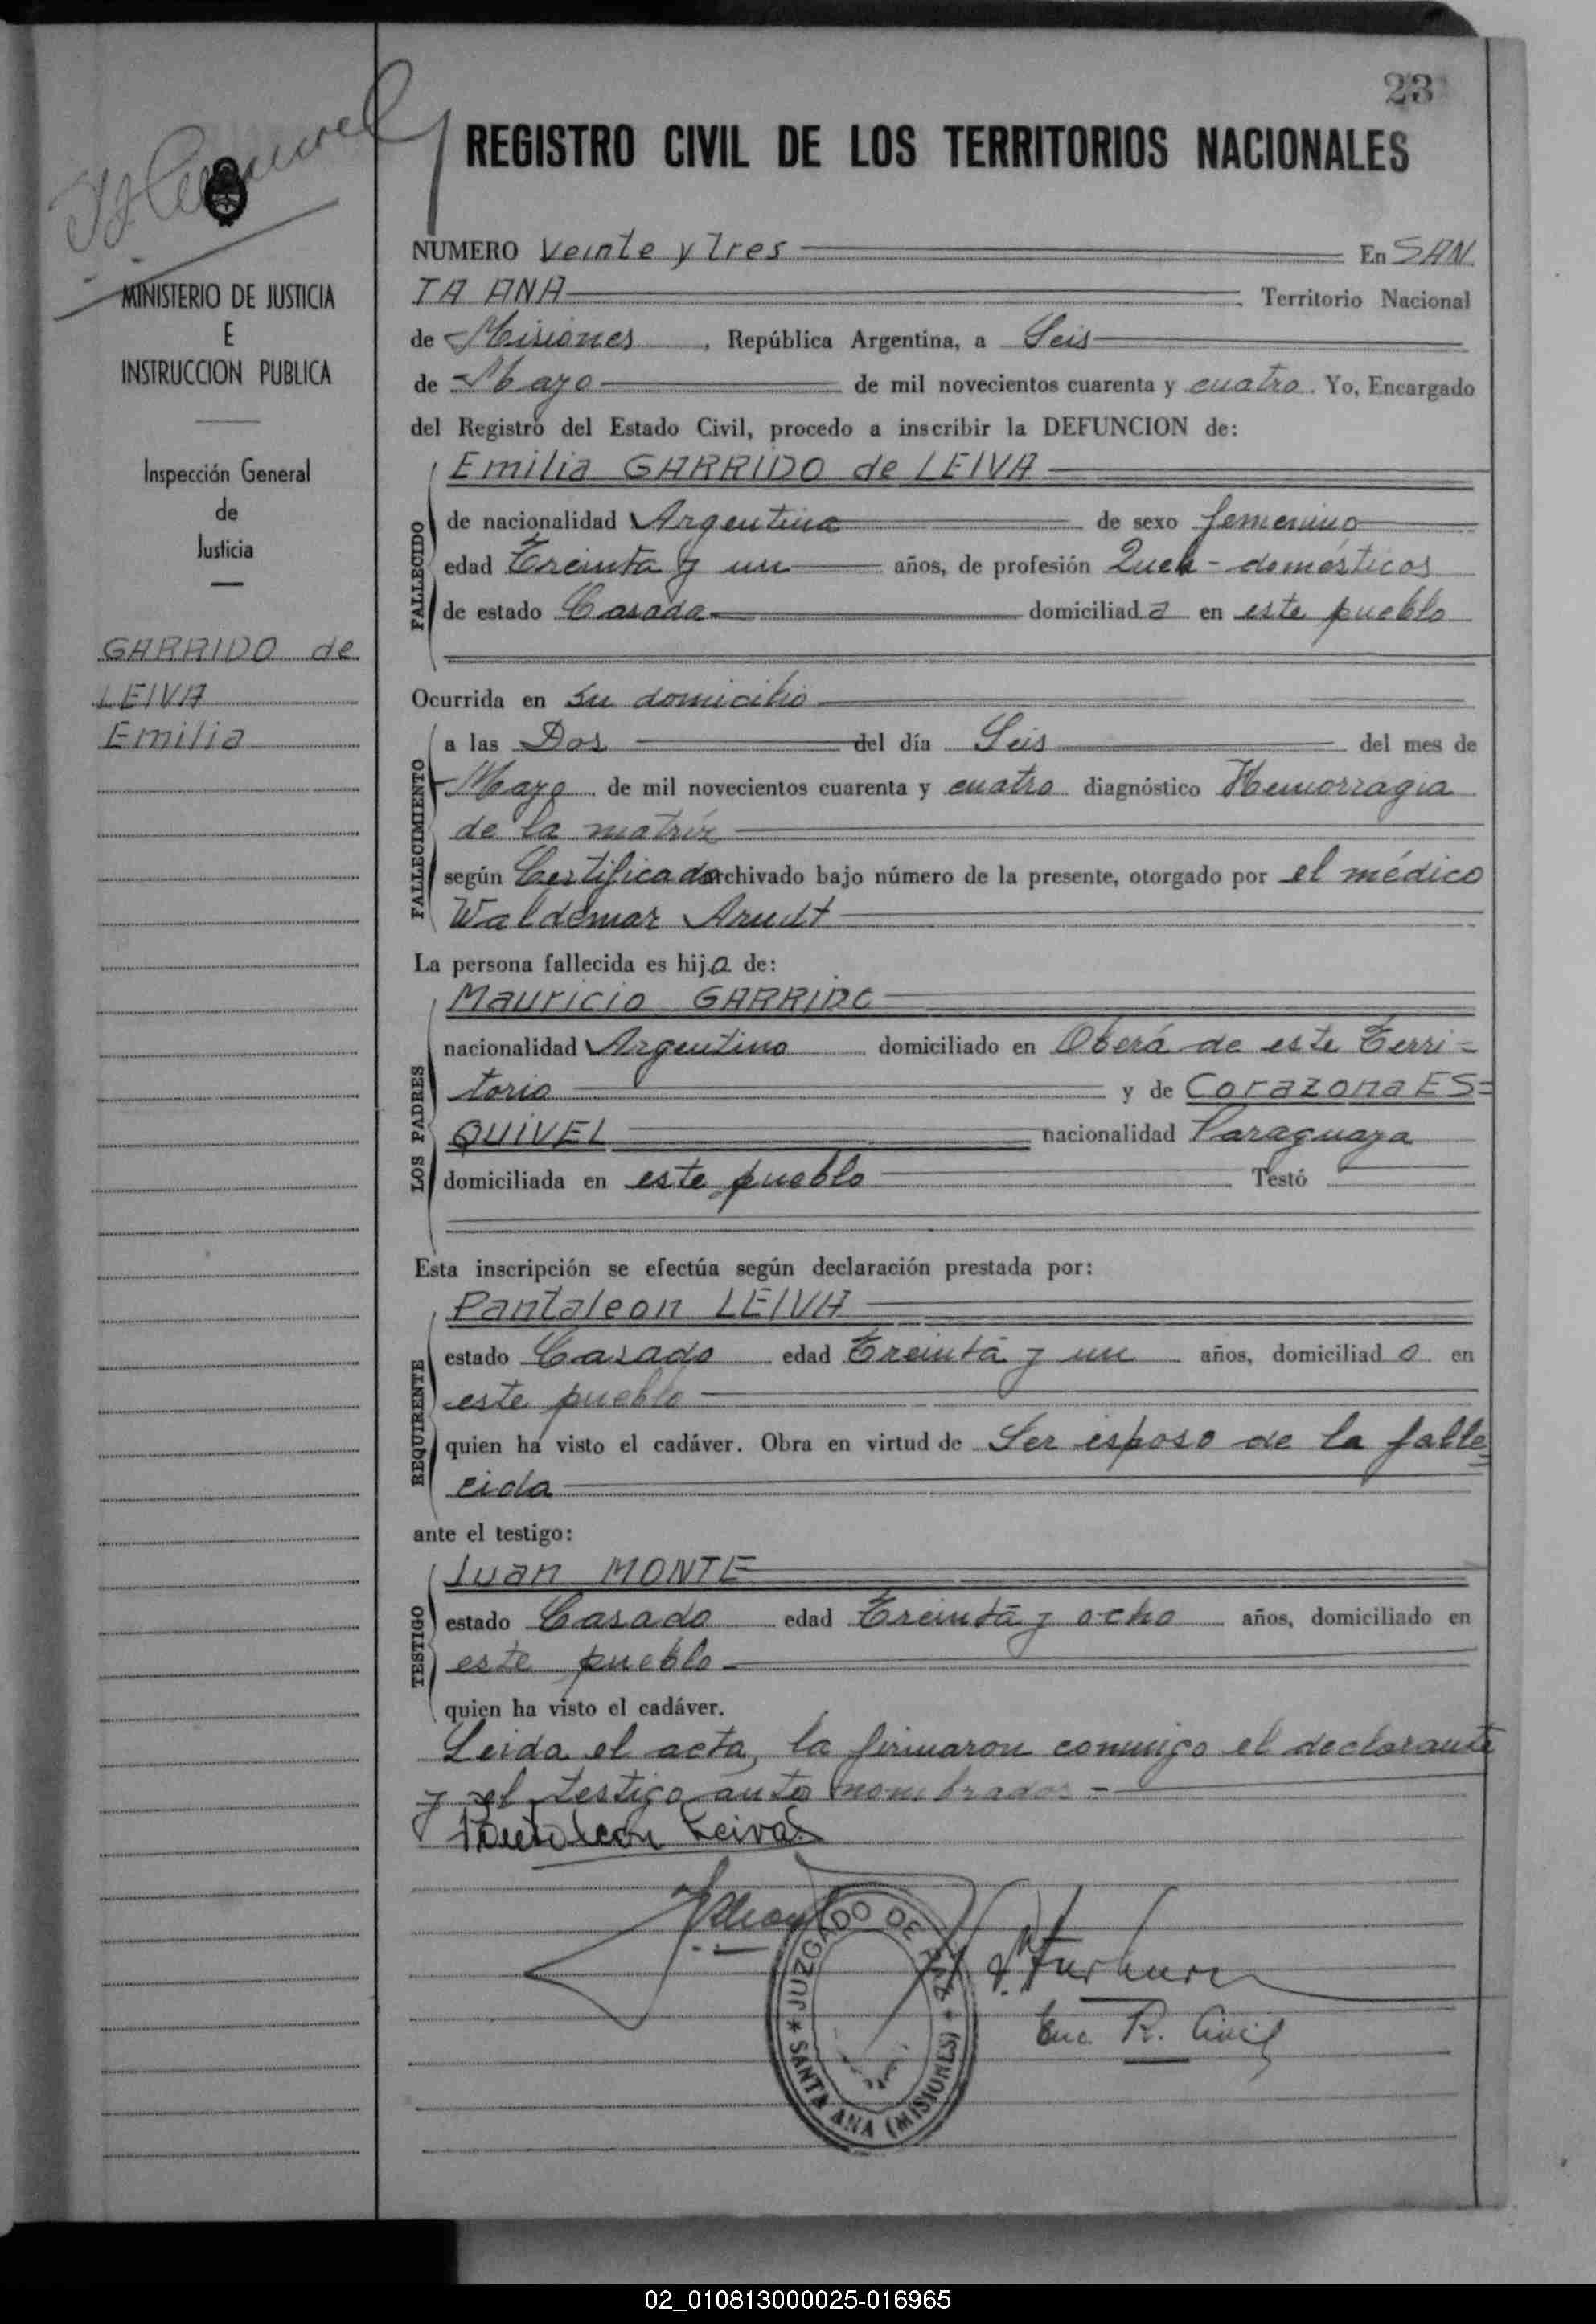 23
REGISTRO CIVIL DE LOS TERRITORIOS NACIONALES
MINISTERIO DE JUSTICIA
E
INSTRUCCION PUBLICA
Inspección General
de
Justicia
GARRIDO de
LEIVA
Emilia
NUMERO Veinte y Tres En SAN
TA ANA Territorio Nacional
de Misiones, República Argentina, a Seis
de Mayo de mil novecientos cuarenta y cuatro. Yo, Encargado
del Registro del Estado Civil, procedo a inscribir la DEFUNCION de:
Emilia GARRIDO de LEIVA
FALLECIDO
de nacionalidad Argentina de sexo femenino
edad Treinta y un años, de profesión Queh-domésticos
de estado Casada domiciliada en este pueblo
Ocurrida en su domicilio
FALLECIMIENTO
a las Dos del día Seis del mes de
Mayo de mil novecientos cuarenta y cuatro diagnóstico Hemorragia
de la matriz
según Certificado archivado bajo número de la presente, otorgado por el médico
Waldemar Arndt
La persona fallecida es hija de:
LOS PADRES
Mauricio GARRIDO
nacionalidad Argentino domiciliado en Oberá de este Terri=
torio y de Corazona ES=
QUIVEL nacionalidad Paraguaya
domiciliada en este pueblo Testó
Esta inscripción se efectúa según declaración prestada por:
REQUIRENTE
Pantaleon LEIVA
estado Casado edad Treinta y un años, domiciliado en
este pueblo
quien ha visto el cadáver. Obra en virtud de Ser esposo de la falle=
cida
ante el testigo:
TESTIGO
Juan MONTE
estado Casado edad Treinta y ocho años, domiciliado en
este pueblo
quien ha visto el cadáver.
Leida el acta, la firmaron conmigo el declarante
y el testigo antes nombrados.-
Pantaleon Leiva
JUZGADO DE PAZ * SANTA ANA (MISIONES) *
Enc. R. Civil
02_010813000025-016965